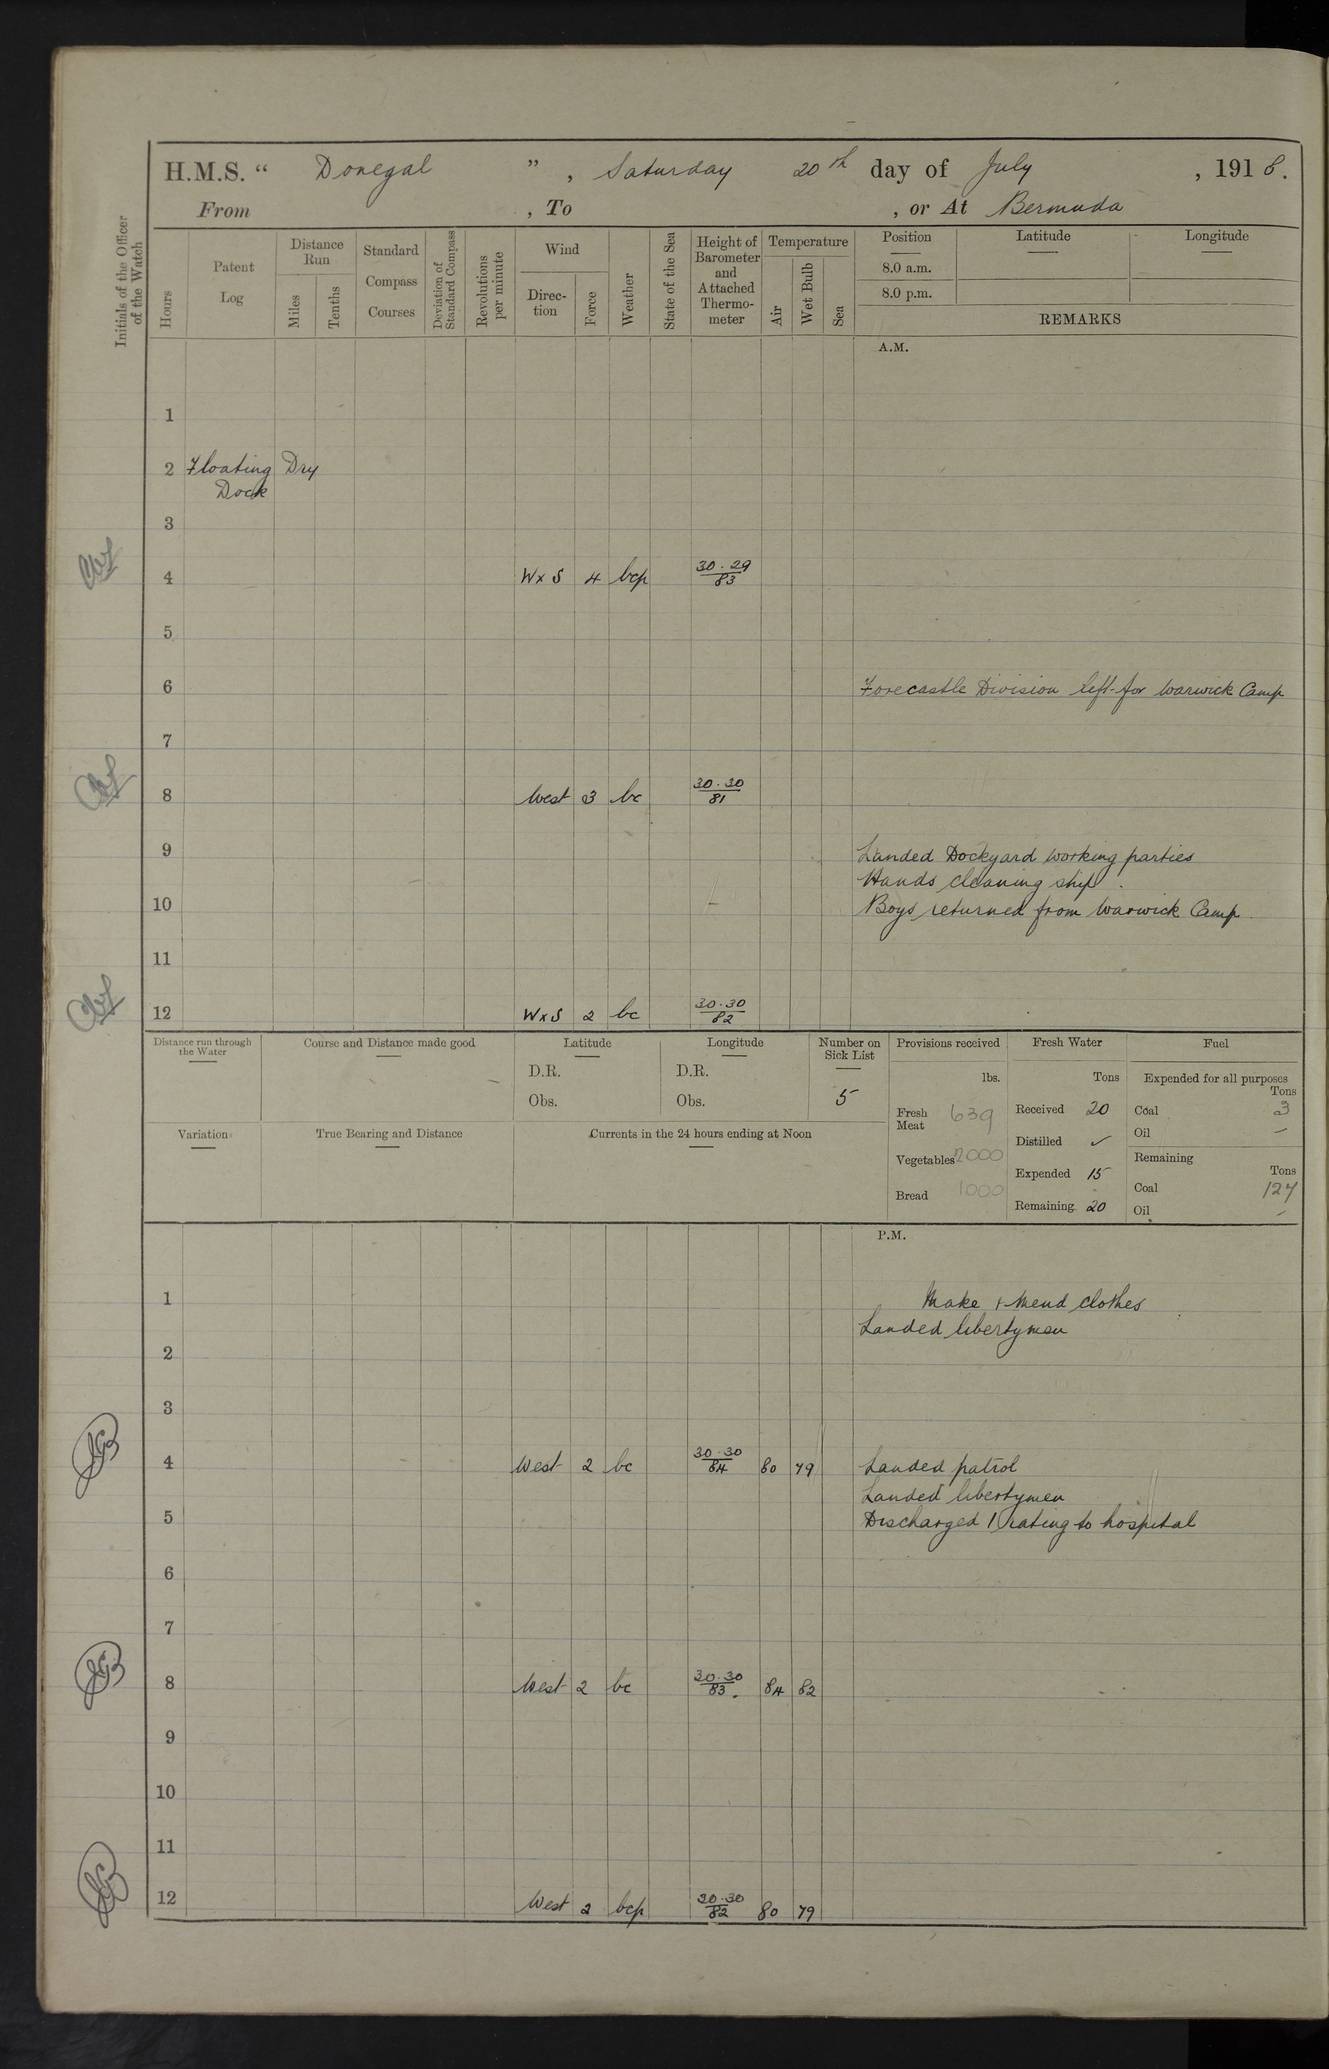 H.M.S. “ Donegal ”, Saturday 20th day of July, 1918.
From , To , or At Bermuda
Initials of the Officer of the Watch
Hours
Patent Log
Distance Run
Miles
Tenths
Standard Compass Courses
Deviation of Standard Compass
Revolutions per minute
Wind
Direc-tion
Force
Weather
State of the Sea
Height of Barometer and Attached Thermo-meter
Temperature
Air
Wet Bulb
Sea
Position Latitude Longitude
8.0 a.m.
8.0 p.m.
REMARKS
A.M.
1
2 Floating Dry
Dock
3
4 W x S 4 bcp 30.29 83
5
6 Forecastle Division left for Warwick Camp
7
8 West 3 bc 30.30 81
9 Landed Dockyard working parties
Hands cleaning ship.
10 Boys returned from Warwick Camp.
11
12 W x S 2 bc 30.30 82
Distance run through the Water
Course and Distance made good
Latitude
D.R.
Obs.
Longitude
D.R.
Obs.
Number on Sick List
5
Provisions received
lbs.
Fresh Meat 639
Vegetables 2000
Bread 1000
Fresh Water
Tons
Received 20
Distilled ✓
Expended 15
Remaining 20
Fuel
Expended for all purposes
Tons
Coal 3
Oil –
Remaining
Tons
Coal 127
Oil –
Variation
True Bearing and Distance
Currents in the 24 hours ending at Noon
P.M.
1 Make & Mend clothes
Landed libertymen
2
3
4 West 2 bc 30.30 84 80 79 Landed patrol
Landed libertymen
5 Discharged 1 rating to hospital
6
7
8 West 2 bc 30.30 83. 84 82
9
10
11
12 West 2 bcp 30.30 82 80 79